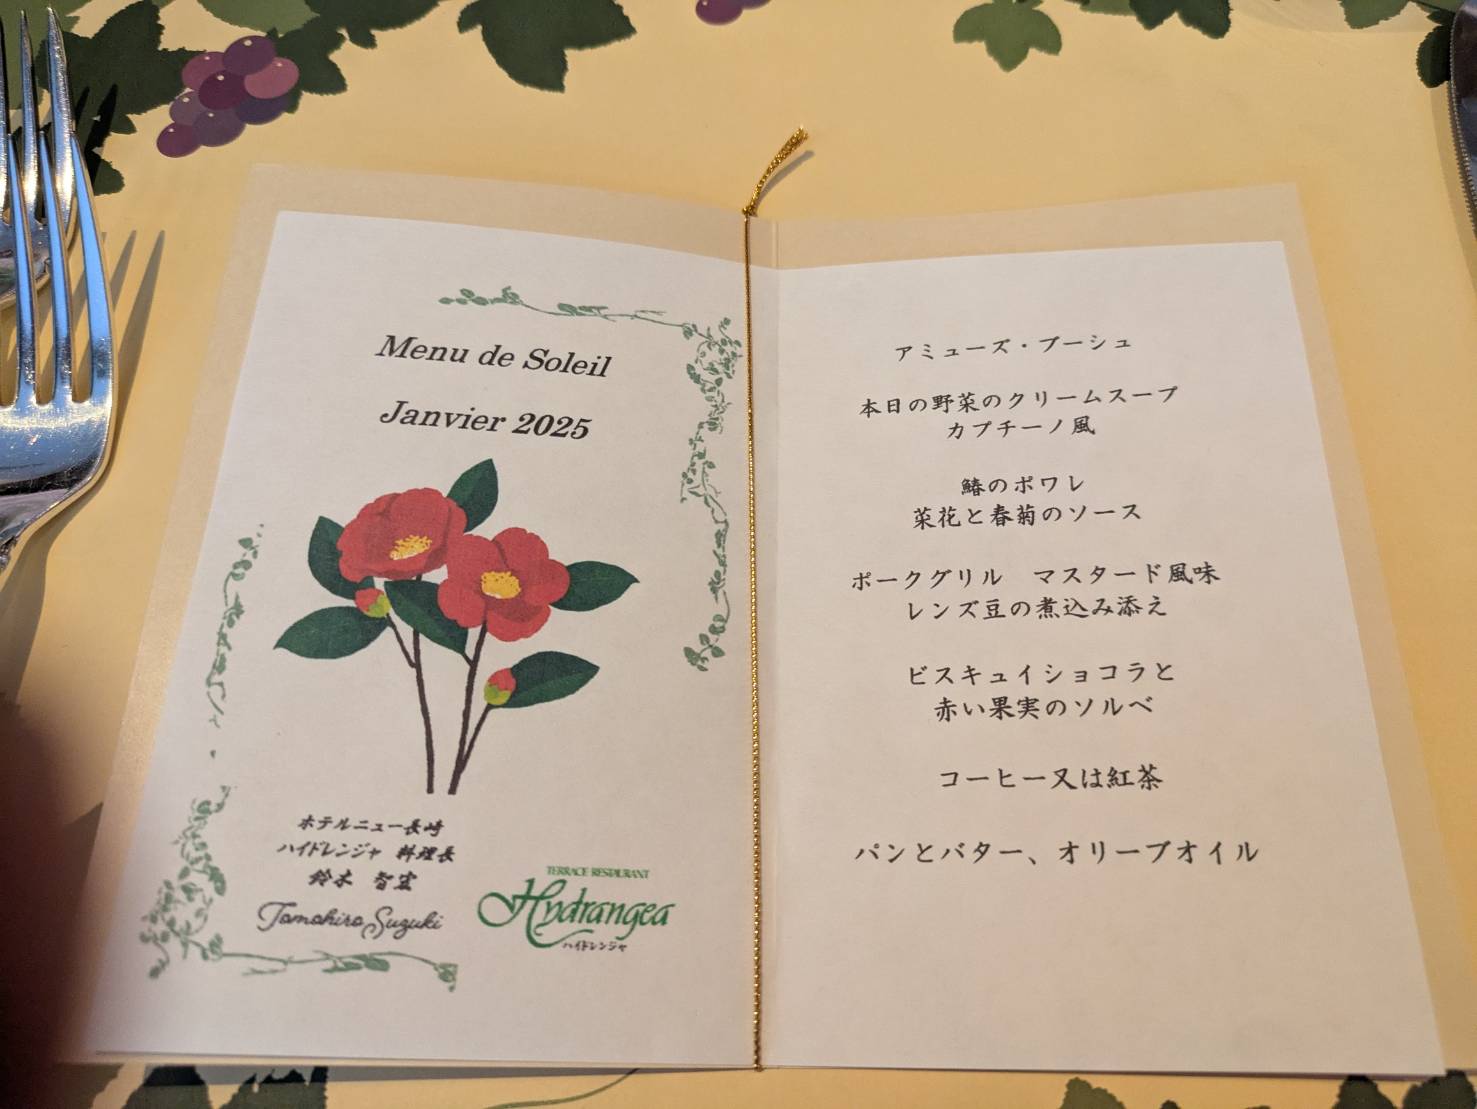 Menu de Soleil
Janvier 2025
ホテルニュー長崎
ハイドレンジャ 料理長
鈴木 智宏
Tomohiro Suzuki
TERRACE RESTAURANT
Hydrangea
ハイドレンジャ
アミューズ・ブーシュ
本日の野菜のクリームスープ
カプチーノ風
鰆のポワレ
菜花と春菊のソース
ポークグリル　マスタード風味
レンズ豆の煮込み添え
ビスキュイショコラと
赤い果実のソルベ
コーヒー又は紅茶
パンとバター、オリーブオイル